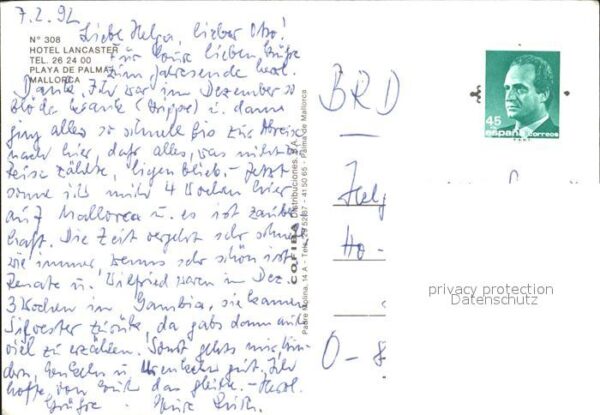 7.2.92
Liebe Helga, lieber Otto!
Für Eure lieben Grüße
zum Jahresende herzl.
Dank. Ich war im Dezember so
blöde krank (Grippe) u. dann
ging alles so schnell bis zur Abreise
nach hier, daß alles, was nicht
Reise zählte, liegen blieb. – Jetzt
sonne ich mich 4 Wochen hier
auf Mallorca u. es ist zauber-
haft. Die Zeit vergeht sehr schnell
wie immer, wenns sehr schön ist.
Renate u. Wilfried waren im Dez.
3 Wochen in Gambia, sie kamen
Silvester zurück, da gabs dann
viel zu erzählen. Sonst gehts mir, Kin-
dern, Enkeln u. Urenkeln gut. Ich
hoffe, von Euch das gleiche. – Herzl.
Grüße Eure Ruth.
N° 308
HOTEL LANCASTER
TEL. 26 24 00
PLAYA DE PALMA
MALLORCA
COFIBA Distribuciones, S.A.
Padre Molina, 14 A - Tels. 29 52 87 - 41 50 65 - Palma de Mallorca
BRD
Helg
Ho-
O-8
45
españa correos
privacy protection
Datenschutz